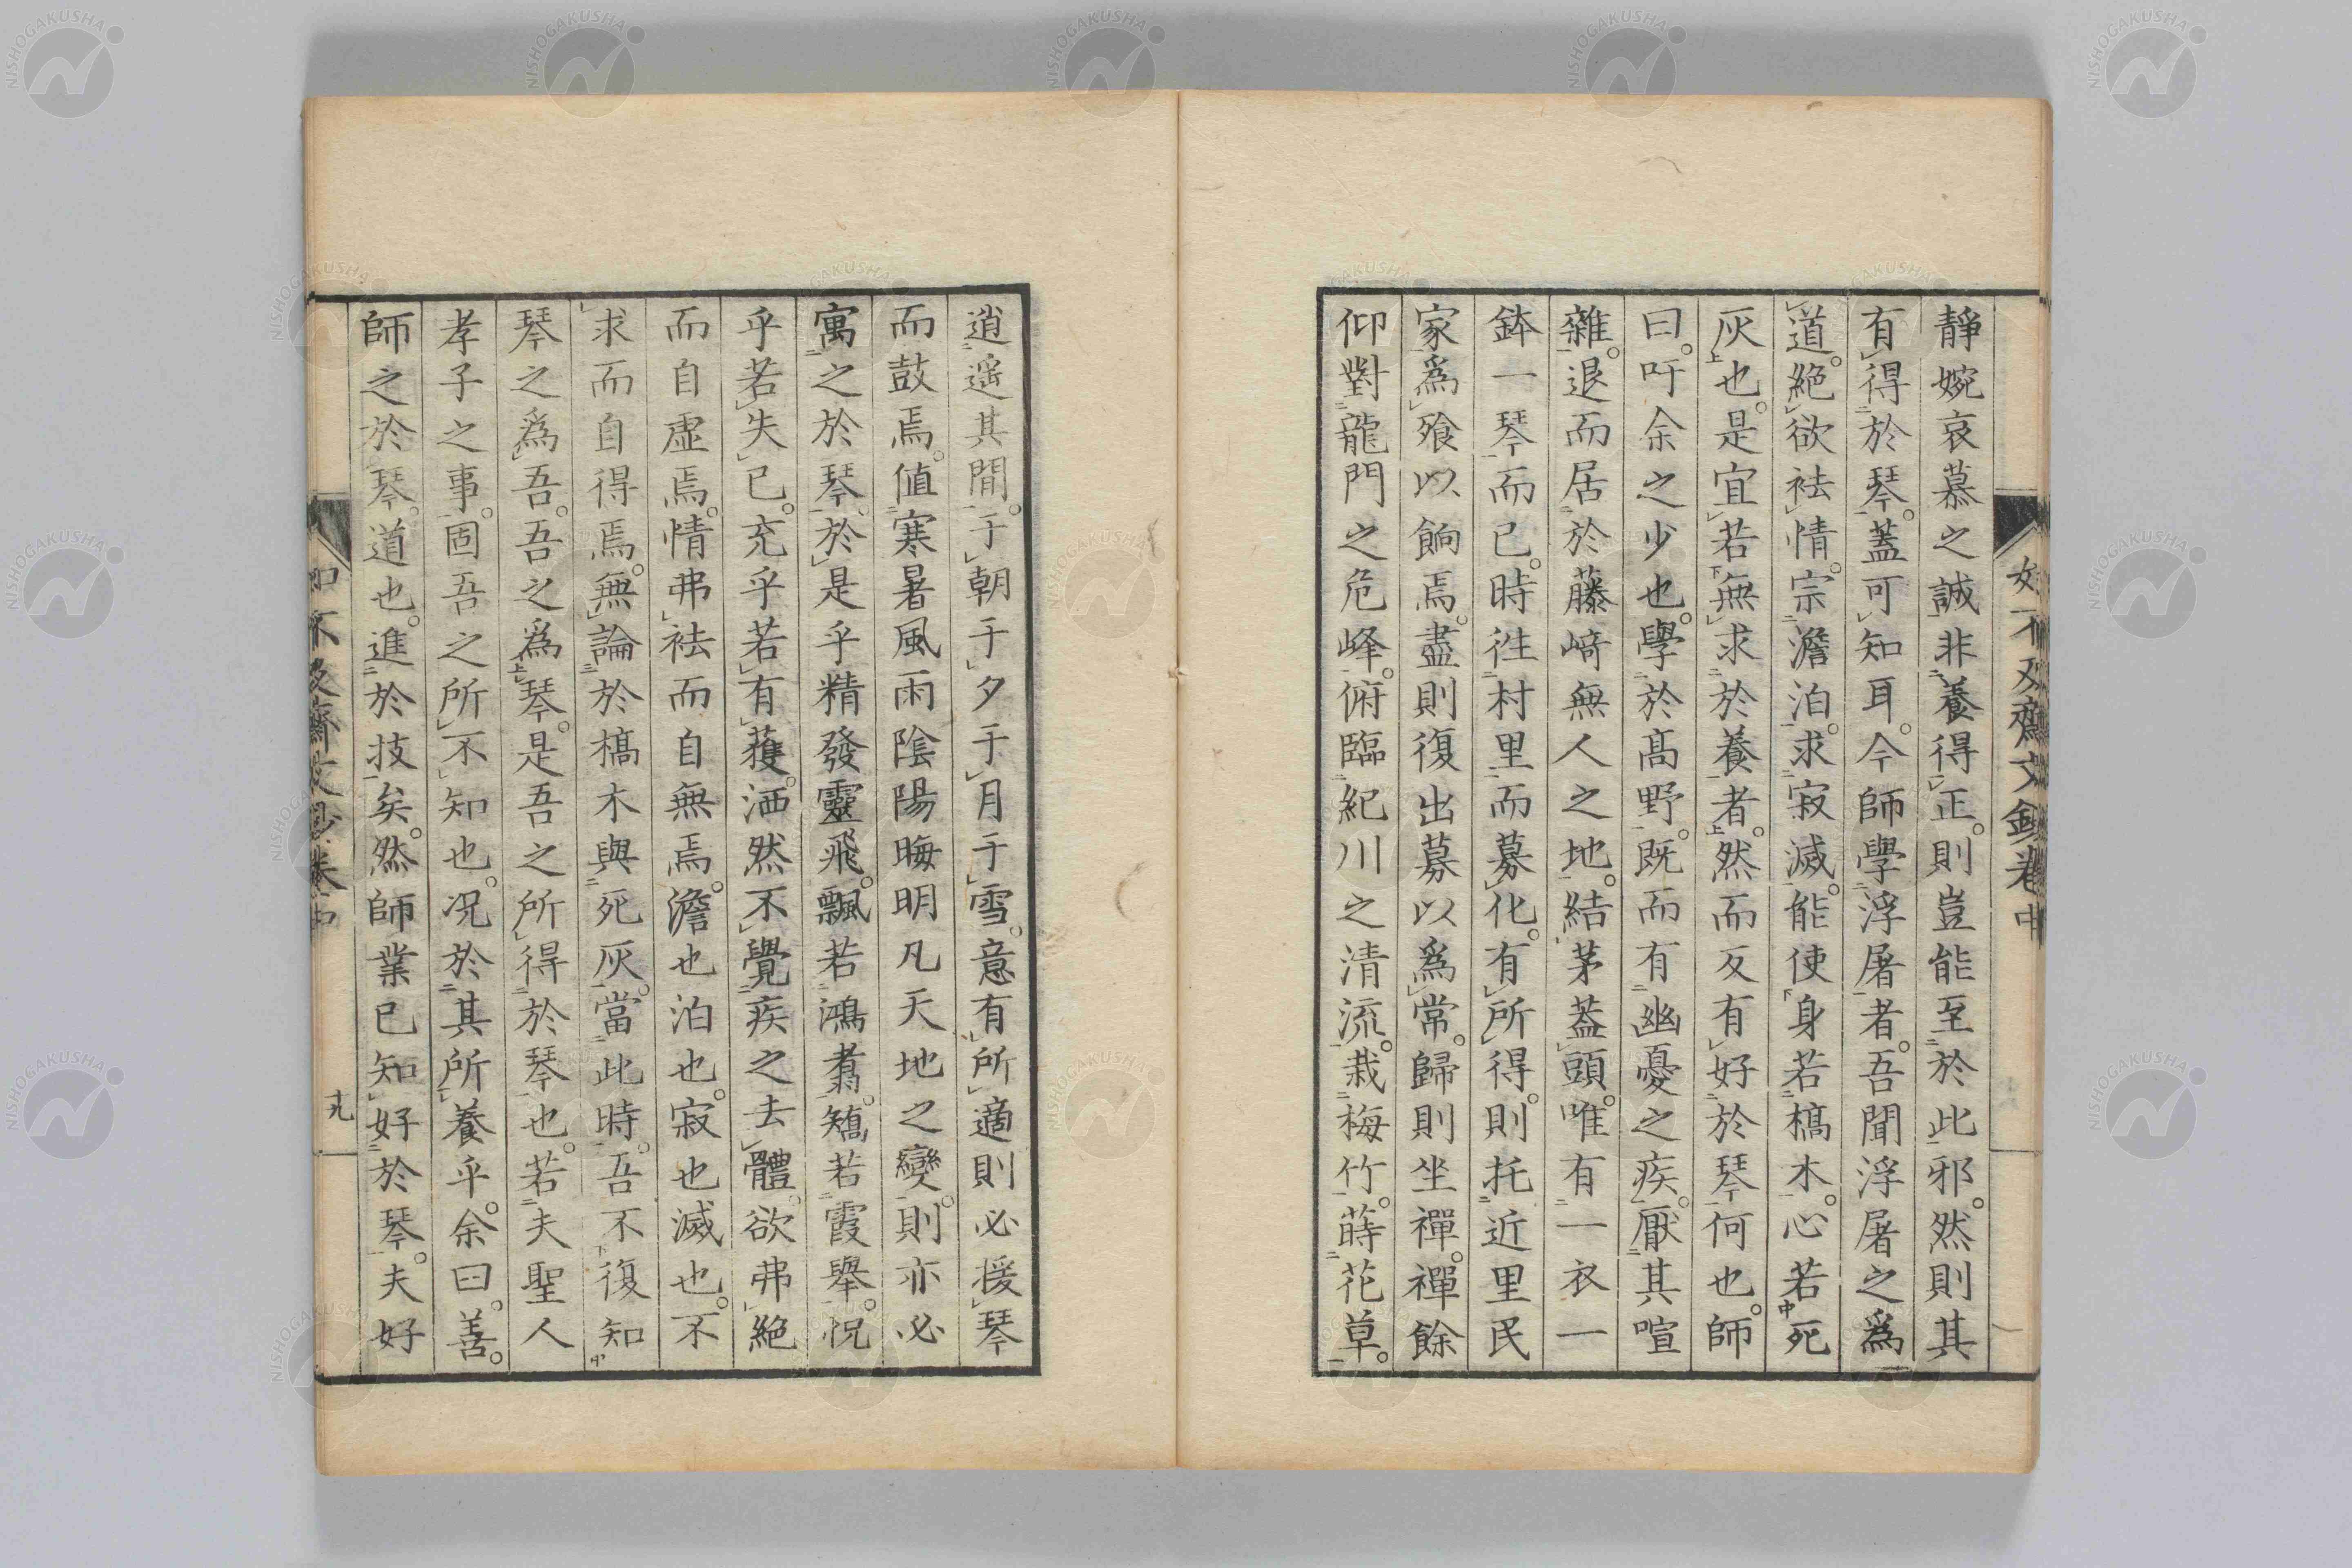 靜婉哀慕之誠非養得正則豈能至於此邪然則其
有得於琴蓋可知耳今師學浮屠者吾聞浮屠之爲
道絕欲祛情宗澹泊求寂滅能使身若槁木心若死
灰也是宜若無求於養者然而反有好於琴何也師
曰吁余之少也學於高野既而有幽憂之疾厭其喧
雜退而居於藤﨑無人之地結茅蓋頭唯有一衣一
鉢一琴而已時徃村里而募化有所得則托近里民
家爲飱以餉焉盡則復出募以爲常歸則坐禪禪餘
仰對龍門之危峰俯臨紀川之清流栽梅竹蒔花草
如不及齋文鈔卷中
逍遥其間于朝于夕于月于雪意有所適則必援琴
而鼓焉値寒暑風雨陰陽晦明凡天地之變則亦必
寓之於琴於是乎精發靈飛飄若鴻翥矯若霞舉怳
乎若失已充乎若有獲洒然不覺疾之去體欲弗絕
而自虛焉情弗祛而自無焉澹也泊也寂也滅也不
求而自得焉無論於槁木與死灰當此時吾不復知
琴之爲吾吾之爲琴是吾之所得於琴也若夫聖人
孝子之事固吾之所不知也况於其所養乎余曰善
師之於琴道也進於技矣然師業已知好於琴夫好
如不及齋文鈔卷中
十九
NISHOGAKUSHA